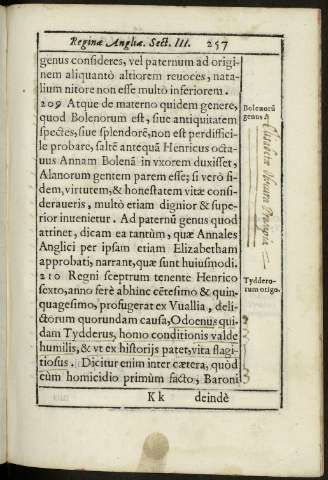 Reginæ Angliæ. Sect. III. 257
genus consideres, vel paternum ad origi-
nem aliquantò altiorem reuoces, nata-
lium nitore non esse multò inferiorem.
209 Atque de materno quidem genere,
quod Bolenorum est, siue antiquitatem
spectes, siue splendorē, non est perdifficí-
le probare, saltē antequā Henricus octa-
uus Annam Bolenā in vxorem duxisset,
Alanorum gentem parem esse; si verò fi-
dem, virtutem, & honestatem vitæ consi-
deraueris, multò etiam dignior & supe-
rior inuenietur. Ad paternū genus quod
attinet, dicam ea tantùm, quæ Annales
Anglici per ipsam etiam Elizabetham
approbati, narrant, quæ sunt huiusmodi.
210 Regni sceptrum tenente Henrico
sexto, anno ferè abhinc cētesimo & quin-
quagesimo, profugerat ex Vuallia, deli-
ctorum quorundam causa, Odoenus qui-
dam Tydderus, homo conditionis valde
humilis, & vt ex historijs patet, vita flagi-
tiosus. Dicitur enim inter cætera, quòd
cùm homicidio primùm facto, Baroni
Kk deindè
Bolenorū
genus
Tyddero-
rum origo.